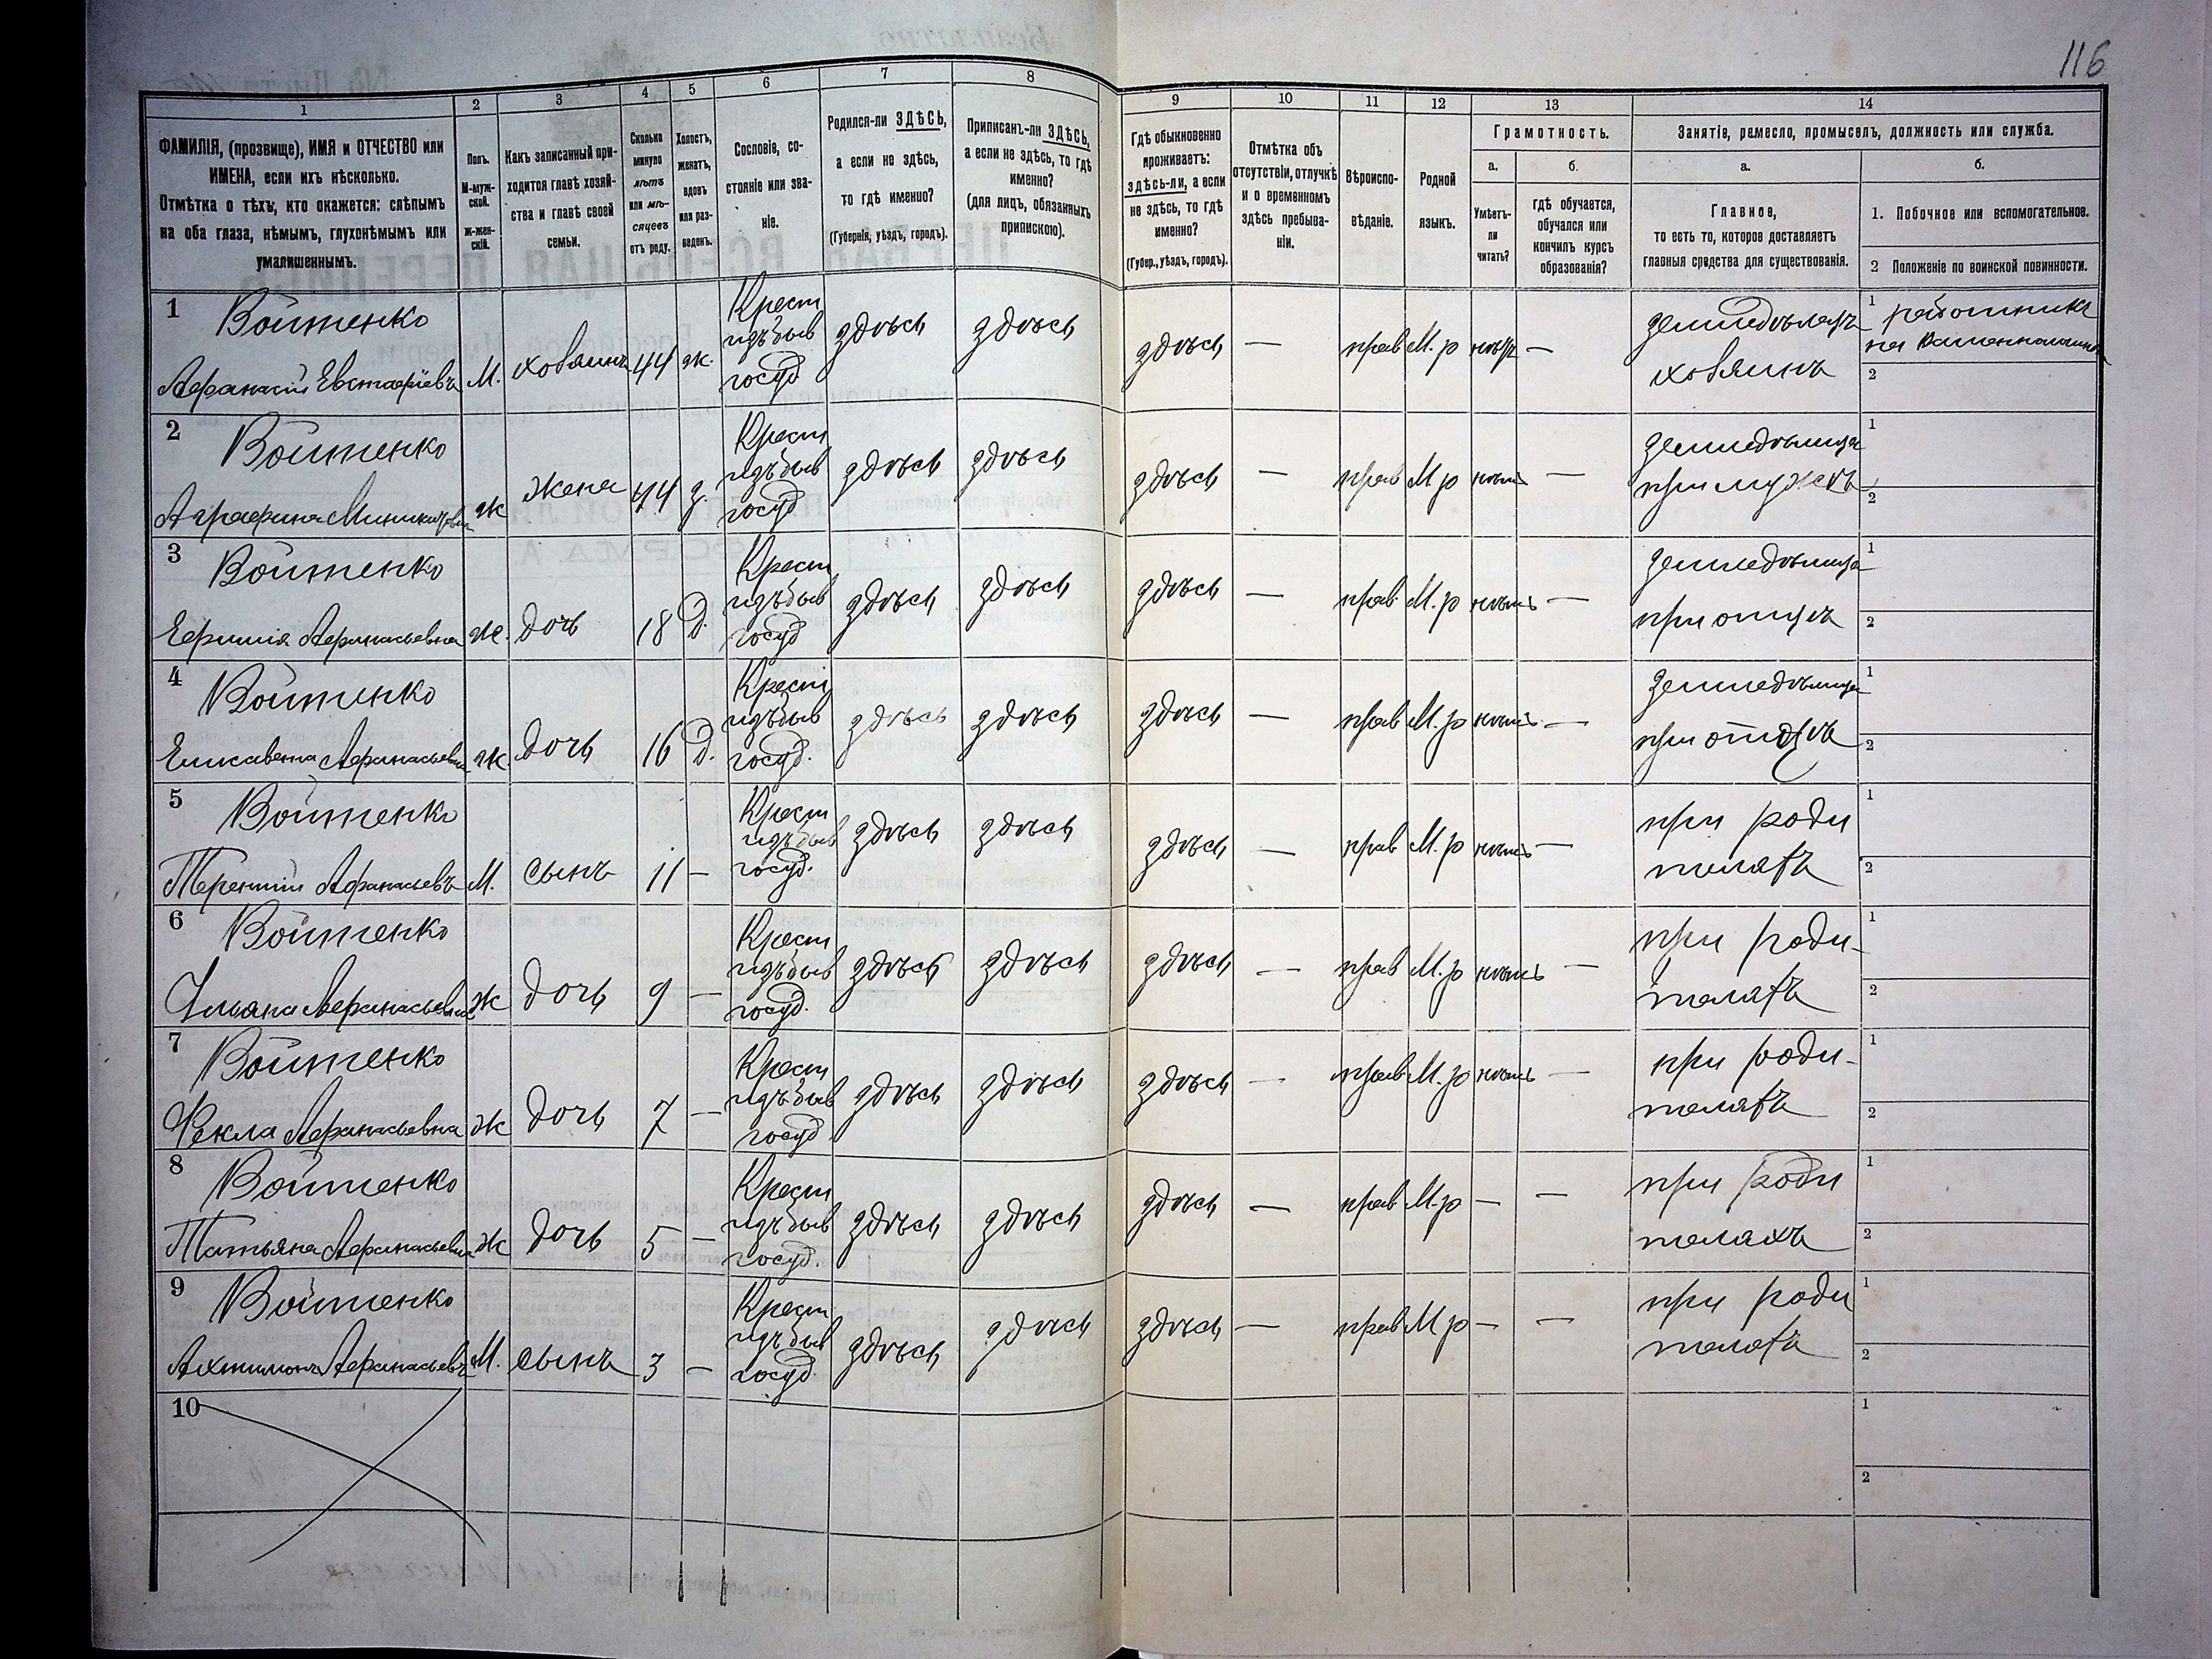 116
1 2 3 4 5 6 7 8 9 10 11 12 13 14
ФАМИЛІЯ, (прозвище), ИМЯ и ОТЧЕСТВО или
ИМЕНА, если ихъ нѣсколько.
Отмѣтка о тѣхъ, кто окажется: слѣпымъ
на оба глаза, нѣмымъ, глухонѣмымъ или
умалишеннымъ.
Полъ.
М-муж-
ской.
Ж-жен-
скій.
Какъ записанный при-
ходится главѣ хозяй-
ства и главѣ своей
семьи.
Сколько
минуло
лѣтъ
или мѣ-
сяцевъ
отъ роду.
Холостъ,
женатъ,
вдовъ
или раз-
веденъ.
Сословіе, со-
стояніе или зва-
ніе.
Родился-ли ЗДѢСЬ,
а если не здѣсь,
то гдѣ именно?
(Губернія, уѣздъ, городъ).
Приписанъ-ли ЗДѢСЬ,
а если не здѣсь, то гдѣ
именно?
(для лицъ, обязанныхъ
припискою).
Гдѣ обыкновенно
проживаетъ:
здѣсь-ли, а если
не здѣсь, то гдѣ
именно?
(Губер., уѣздъ, городъ).
Отмѣтка объ
отсутствіи, отлучкѣ
и о временномъ
здѣсь пребыва-
ніи.
Вѣроиспо-
вѣданіе.
Родной
языкъ.
Грамотность.
а. б.
Умѣетъ-
ли
читать?
гдѣ обучается,
обучался или
кончилъ курсъ
образованія?
Занятіе, ремесло, промыселъ, должность или служба.
а. б.
Главное,
то есть то, которое доставляетъ
главныя средства для существованія.
1. Побочное или вспомогательное.
2 Положеніе по воинской повинности.
1 Войтенко
Афанасій Евстафіевъ М. хозяинъ 44 ж. Крест изъ быв госуд здѣсь здѣсь здѣсь — прав М. р — земледѣлецъ хозяинъ
1 работникъ на
2
2 Войтенко
Агрефина ж жена 44 з. Крест изъ быв госуд здѣсь здѣсь здѣсь — прав М р — земледѣлица при мужѣ
1
2
3 Войтенко
Ефимія Афанасьевна ж. дочь 18 Д. Крест изъ быв госуд здѣсь здѣсь здѣсь — прав М. р нѣтъ — земледѣлица при отцѣ
1
2
4 Войтенко
Елисавета Афанасьевна ж. дочь 16 Д. Крест изъ быв госуд. здѣсь здѣсь здѣсь — прав М. р нѣтъ — земледѣлица при отцѣ
1
2
5 Войтенко
Терентій Афанасьевъ М. сынъ 11 — Крест изъ быв госуд. здѣсь здѣсь здѣсь — прав М. р нѣтъ — при роди теляхъ
1
2
6 Войтенко
Ульяна Афанасьевна ж дочь 9 — Крест изъ быв госуд. здѣсь здѣсь здѣсь — прав М. р нѣтъ — при роди- теляхъ
1
2
7 Войтенко
Фекла Афанасьевна ж дочь 7 — Крест изъ быв госуд здѣсь здѣсь здѣсь — прав М. р нѣтъ — при роди- теляхъ
1
2
8 Войтенко
Татьяна Афанасьевна ж дочь 5 — Крест изъ быв госуд. здѣсь здѣсь здѣсь — прав М. р — — при роди теляхъ
1
2
9 Войтенко
Афанасьевъ М. сынъ 3 — Крест изъ быв госуд здѣсь здѣсь здѣсь — прав М р — — при роди теляхъ
1
2
10
1
2